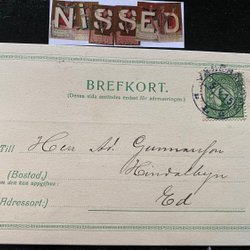 NISSED
BREFKORT.
(Denna sida användes endast för adresseringen.)
Till Herr Ad. Gunnarson
(Bostad,) Hindalbyn
om den kan uppgifvas:
Adressort:) Ed